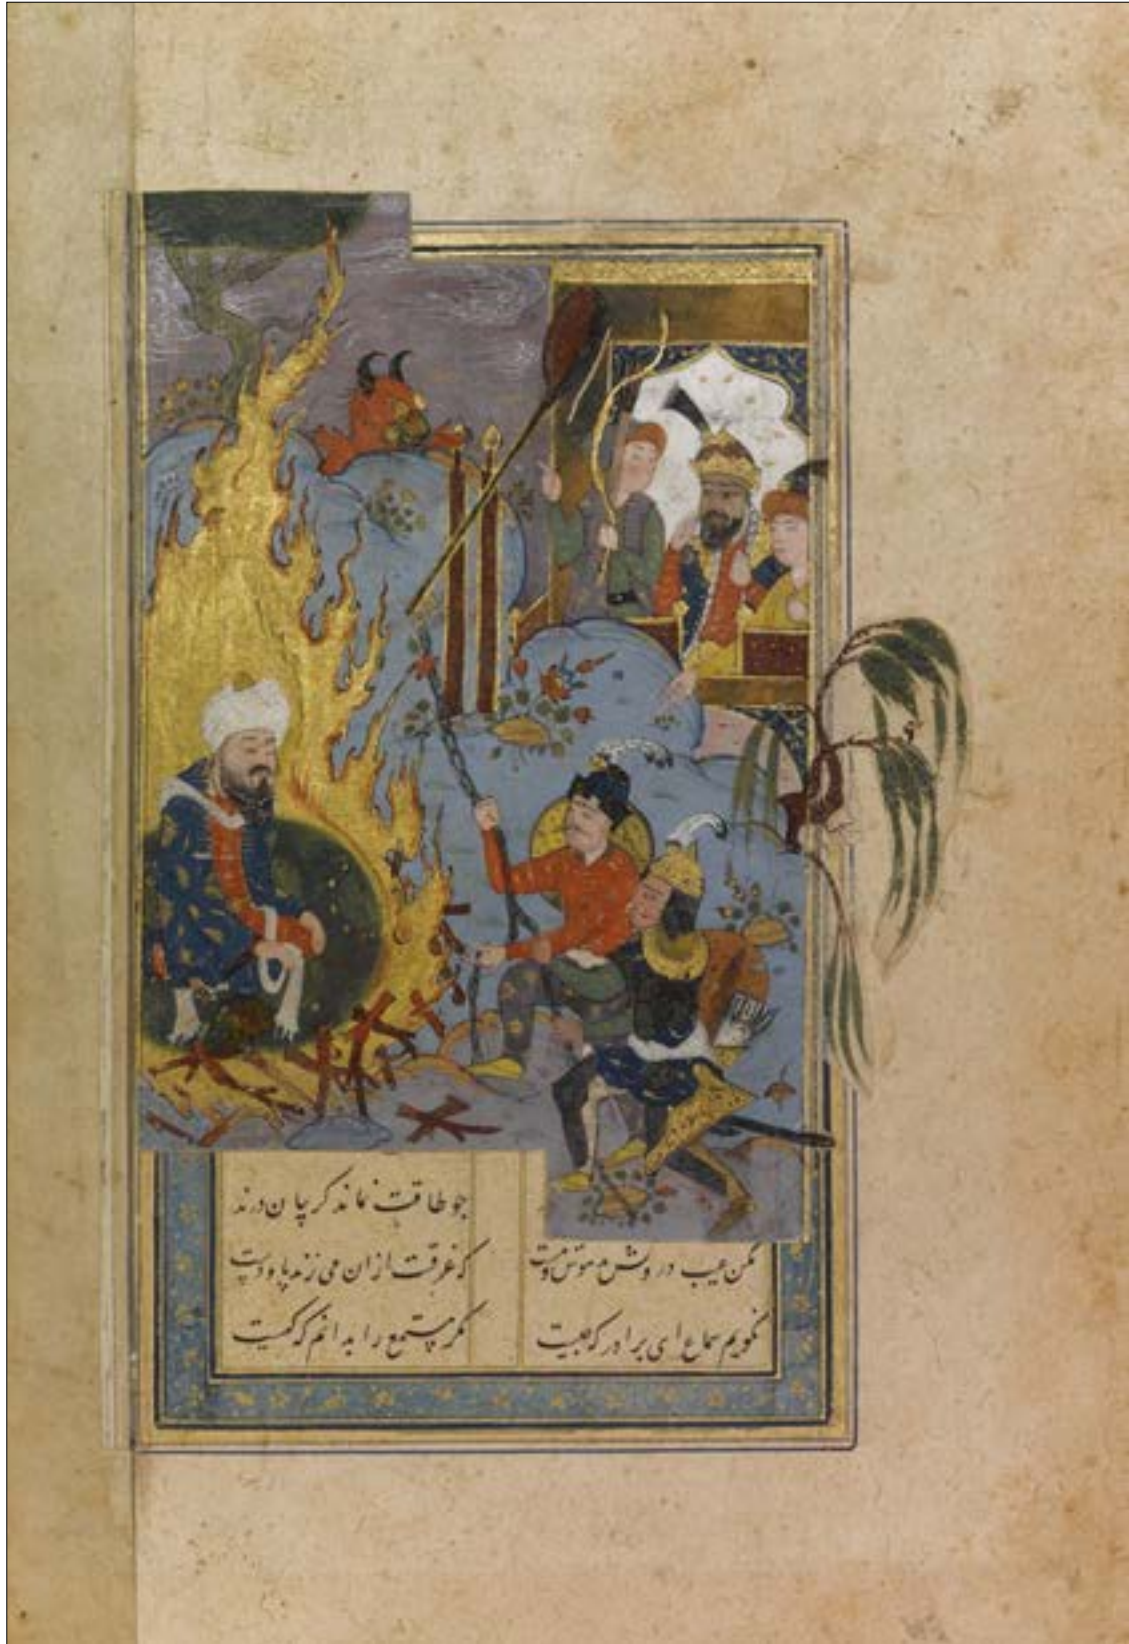 جو طاقت نماند کریبان درند
مکن عیب درویش مدهوش مست که غرقست ازان می زند پا و دست
نکویم سماع ای برادر که چیست مکر مستمع را بدانم که کیست